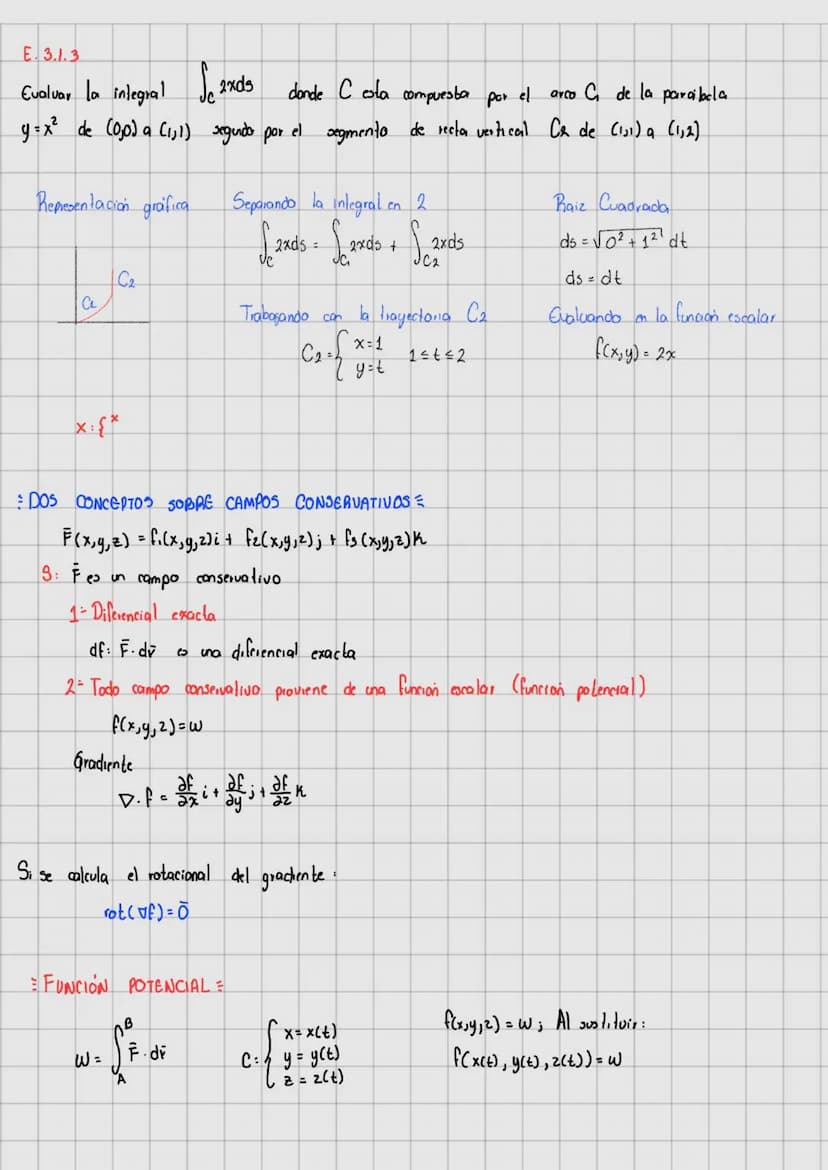 E. 3.1.3
Evaluar la integral ∫_C 2xds donde C esta compuesta por el arco C₁ de la parábola
y = x² de (0,0) a (1,1) seguido por el segmento de recta vertical C2 de (1,1) a (1,2)
Representación gráfica
C2
C1
Separando la integral en 2
∫_C 2xds = ∫_C₁ 2xds + ∫_C2 2xds
Trabajando con la trayectoria C2
C2 = { x=1
y=t
1≤t≤2
Raiz Cuadrada
ds = √(0² + 1²) dt
ds = dt
Evaluando en la función escalar
f(x,y) = 2x
x:{ˣ
DOS CONCEPTOS SOBRE CAMPOS CONSERVATIVOS
F̄(x,y,z) = f₁(x,y,z)i + f₂(x,y,z)j + f₃(x,y,z)k
S: F̄ es un campo conservativo
1- Diferencial exacta
df: F̄·dr̄ es una diferencial exacta
2- Todo campo conservativo proviene de una función escalar (función potencial)
f(x,y,z)=w
Gradiente
∇·f = ∂f/∂x i + ∂f/∂y j + ∂f/∂z k
Si se calcula el rotacional del gradiente:
rot(∇f)=0̄
FUNCIÓN POTENCIAL
w = ∫_A^B F̄·dr̄
C: { x = x(t)
y = y(t)
z = z(t)
f(x,y,z) = w ; Al sustituir:
f(x(t), y(t), z(t)) = w